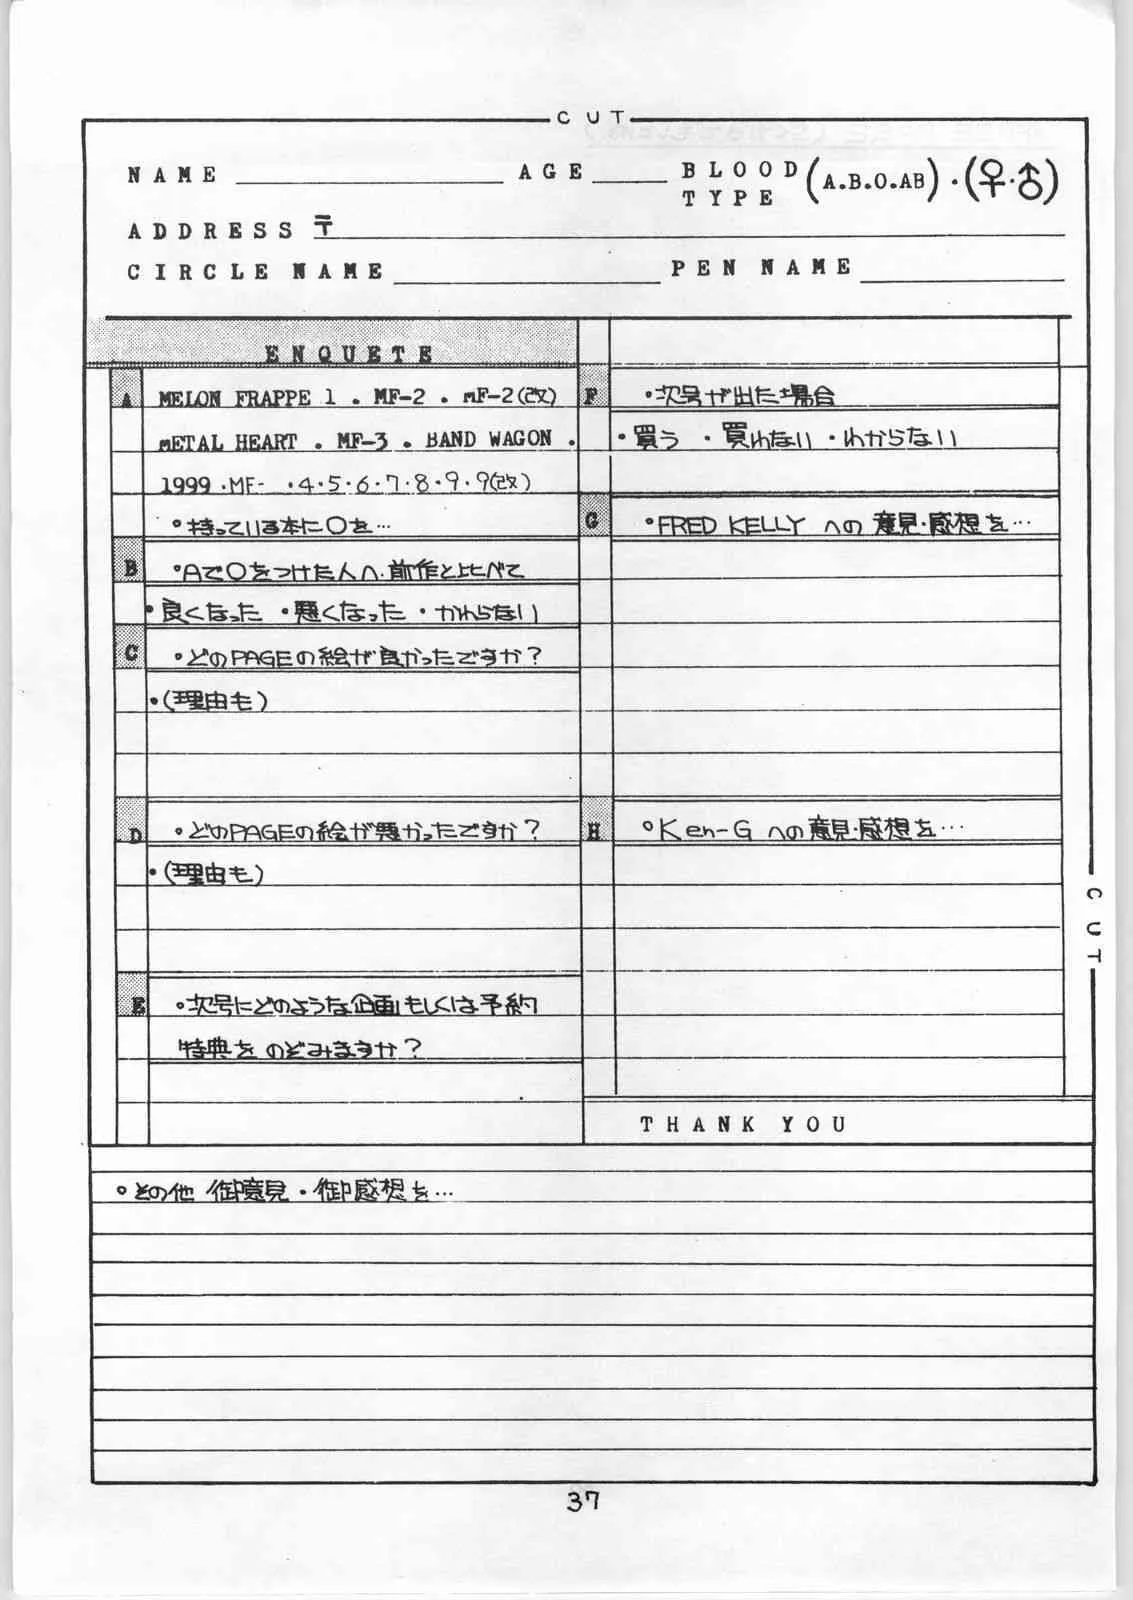 CUT
NAME AGE BLOOD TYPE (A.B.O.AB)・(♀・♂)
ADDRESS 〒
CIRCLE NAME PEN NAME
ENQUETE
A MELON FRAPPE 1 . MF-2 . MF-2(改)
METAL HEART . MF-3 . BAND WAGON .
1999 ・MF- ・4・5・6・7・8・9・9(改)
。持っている本に○を…
B 。Aで○をつけた人へ・前作と比べて
・良くなった ・悪くなった ・かわらない
C ・どのPAGEの絵が良かったですか?
・(理由も)
D ・どのPAGEの絵が悪かったですか?
・(理由も)
E ・次号にどのような企画もしくは予約
特典を のぞみますか?
F ・次号が出た場合
・買う ・買わない ・わからない
G 。FRED KELLY への 意見・感想を…
H 。Ken-G への意見・感想を…
CUT
THANK YOU
。その他 御意見・御感想を…
37